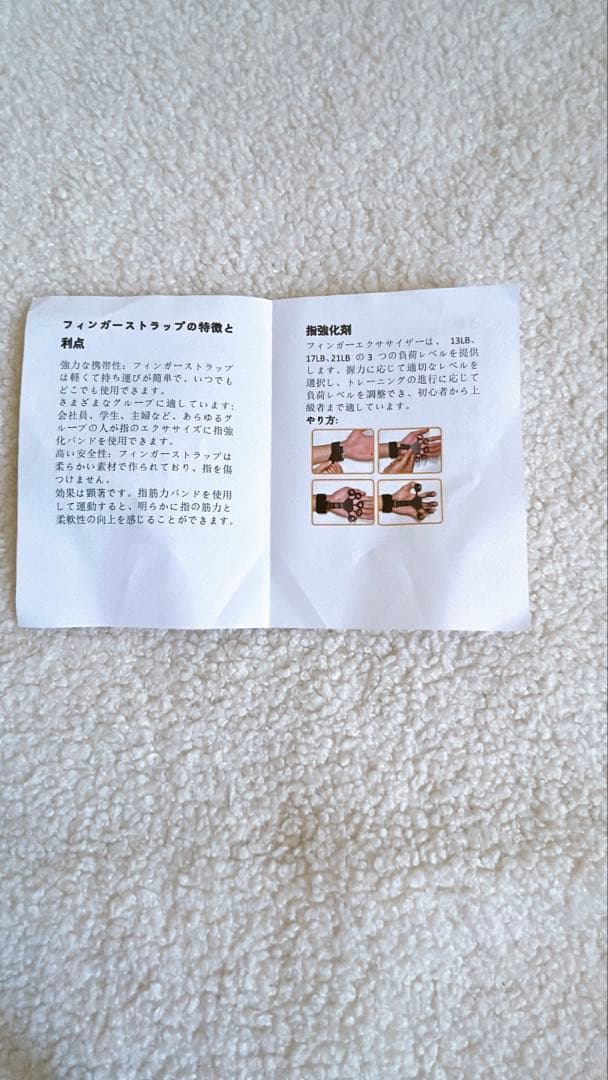 フィンガーストラップの特徴と
利点
強力な携帯性: フィンガーストラップ
は軽くて持ち運びが簡単で、いつでも
どこでも使用できます。
さまざまなグループに適しています:
会社員、学生、主婦など、あらゆるグ
ループの人が指のエクササイズに指強
化バンドを使用できます。
高い安全性: フィンガーストラップは
柔らかい素材で作られており、指を傷
つけません。
効果は顕著です。指筋力バンドを使用
して運動すると、明らかに指の筋力と
柔軟性の向上を感じることができます。
指強化剤
フィンガーエクササイザーは、 13LB、
17LB、21LB の 3 つの負荷レベルを提供
します。握力に応じて適切なレベルを
選択し、トレーニングの進行に応じて
負荷レベルを調整でき、初心者から上
級者まで適しています。
やり方: